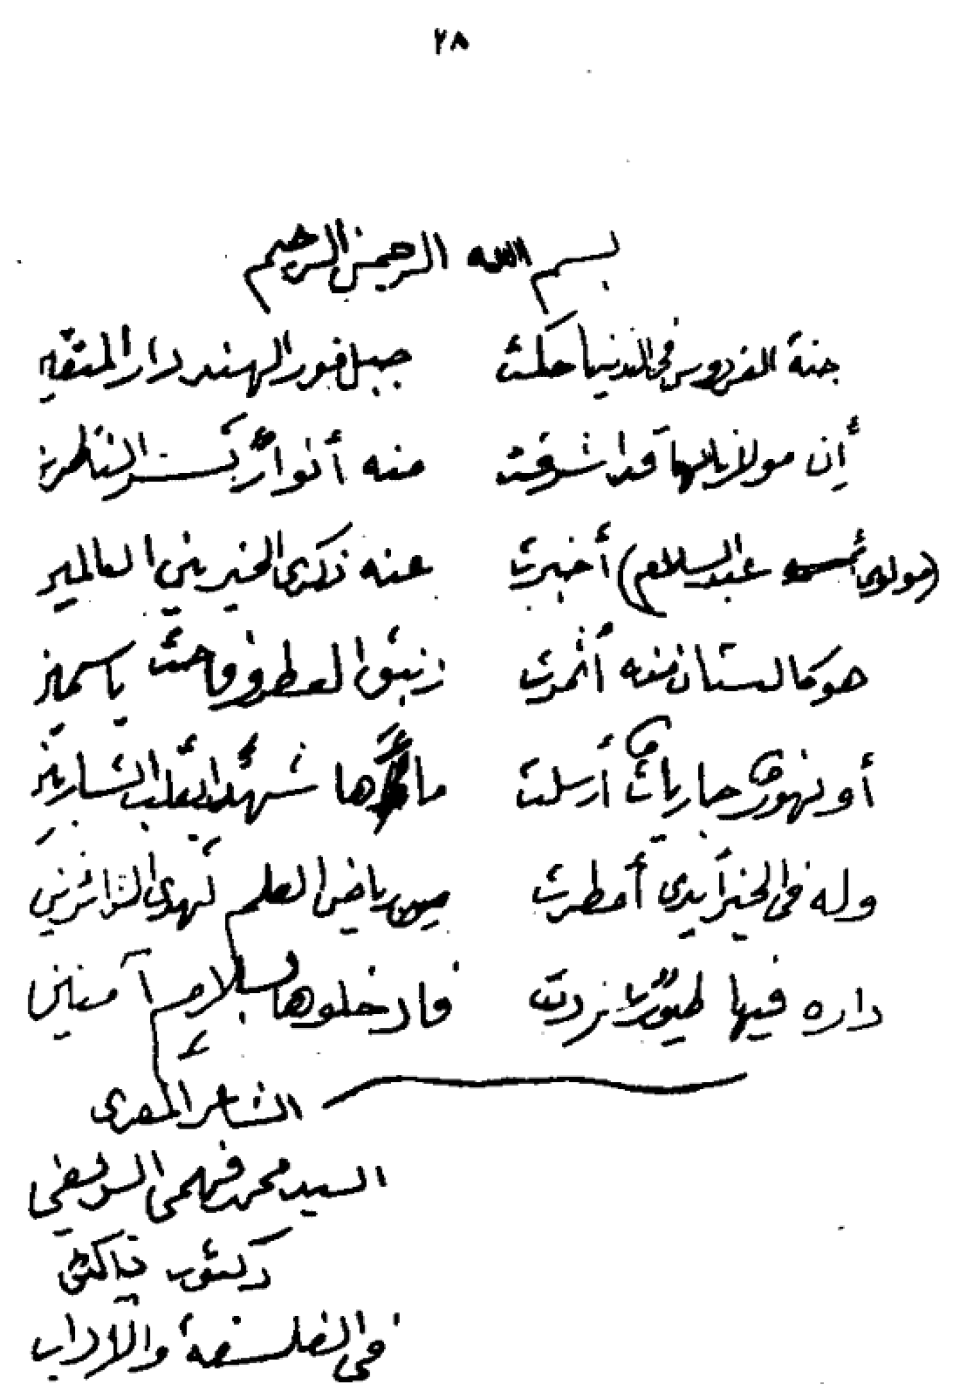 ٢٨
بسم الله الرحمن الرحيم
جنة الفردوس في الدنيا حكت جبل فور الهند دار المتقين
إن مولانا بها قد اشرقت منه أنوار تسر الناظرين
(مولوى عبد السلام) أخبرت عنه ذكرى الخيرين العالمين
هو كالبستان منه أثمرت زنبق العطر وفاحت ياسمين
أو نهور جاريات أرسلت ماءها شهدا لقلب الشاربين
وله في الخير أيدى أمطرت من رياض العلم تهدى الزائرين
داره فيها طيور غردت فادخلوها بسلام آمنين
الشاعر المصرى
السيد محمد فهمى
دكتور
في الفلسفة والآداب